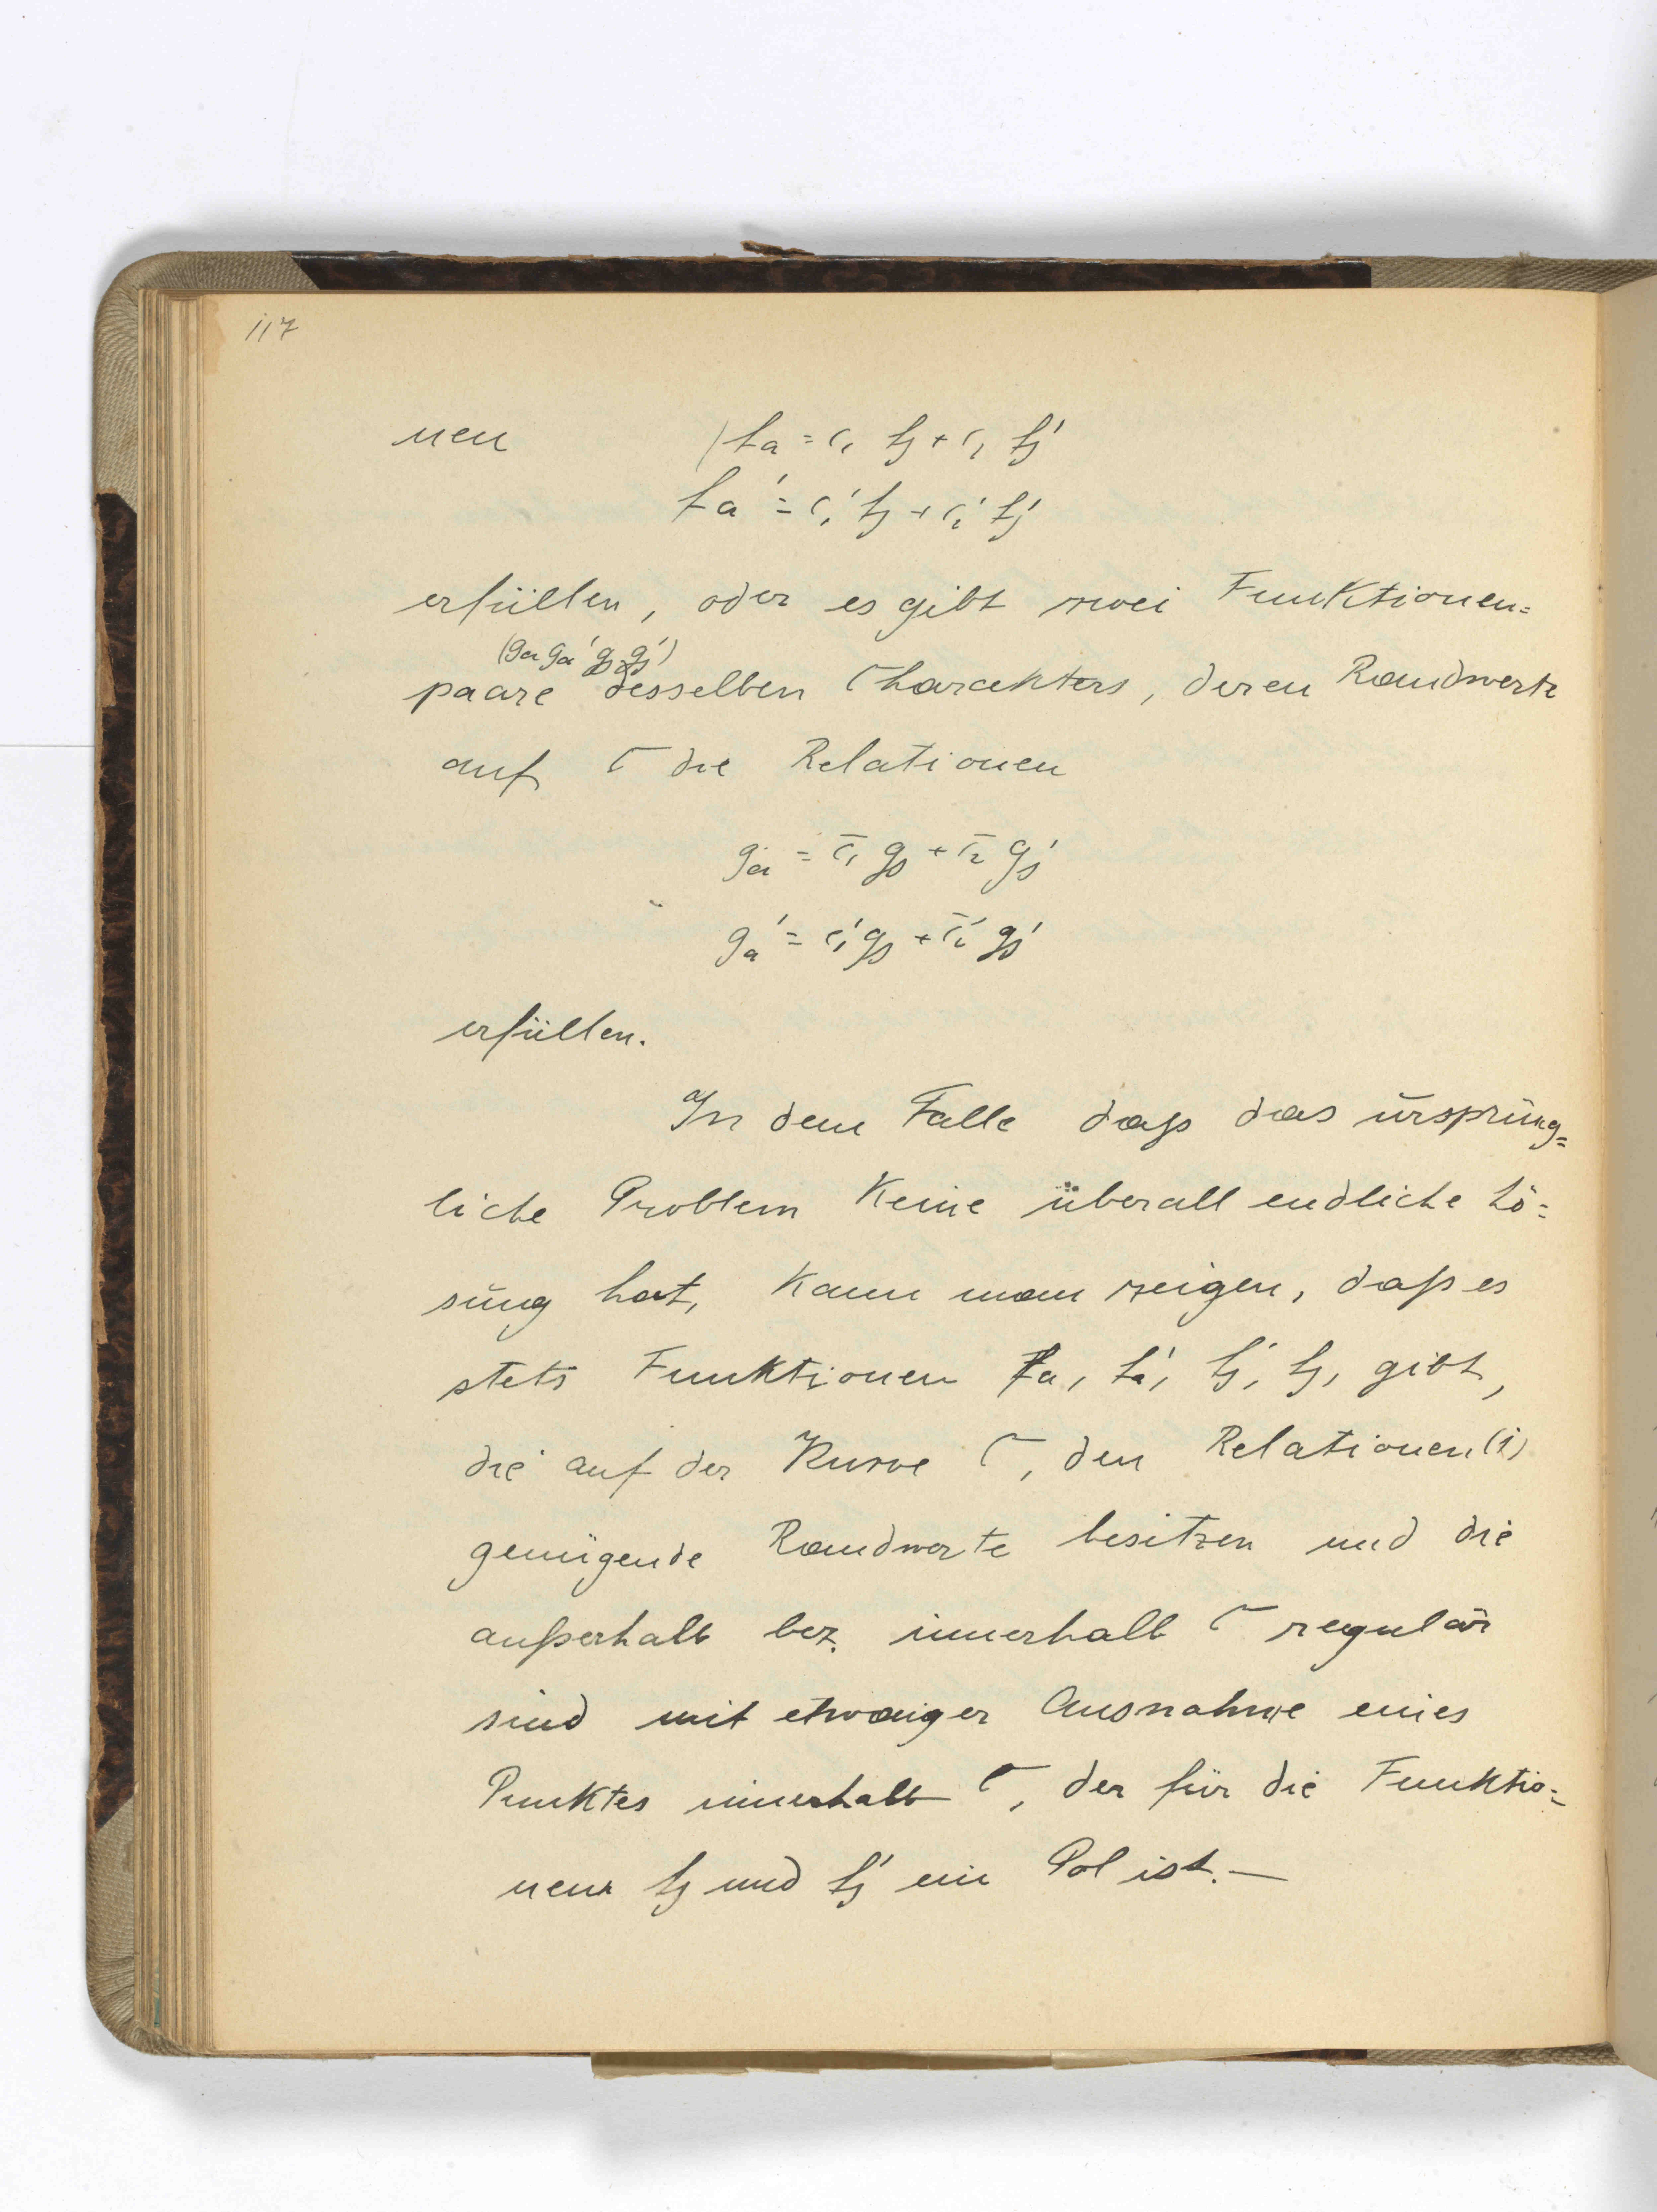 117
nen fa = c₁ fj + c₂ fj'
fa' = c₁' fj + c₂' fj'
erfüllen, oder es gibt zwei Funktionen=
(ga ga' gj gj')
paare desselben Charakters, deren Randwerte
auf C die Relationen
ga = c̄₁ gj + c̄₂ gj'
ga' = c₁' gj + c̄₂' gj'
erfüllen.
In dem Falle daß das ursprüng=
liche Problem keine überall endliche Lö=
sung hat, kann man zeigen, daß es
stets Funktionen fa, fa', fj', fj, gibt,
die auf der Kurve C, den Relationen (1)
genügende Randwerte besitzen und die
außerhalb bez. innerhalb C regulär
sind mit etwaiger Ausnahme eines
Punktes innerhalb C, der für die Funktio=
nen fj und fj' ein Pol ist. —